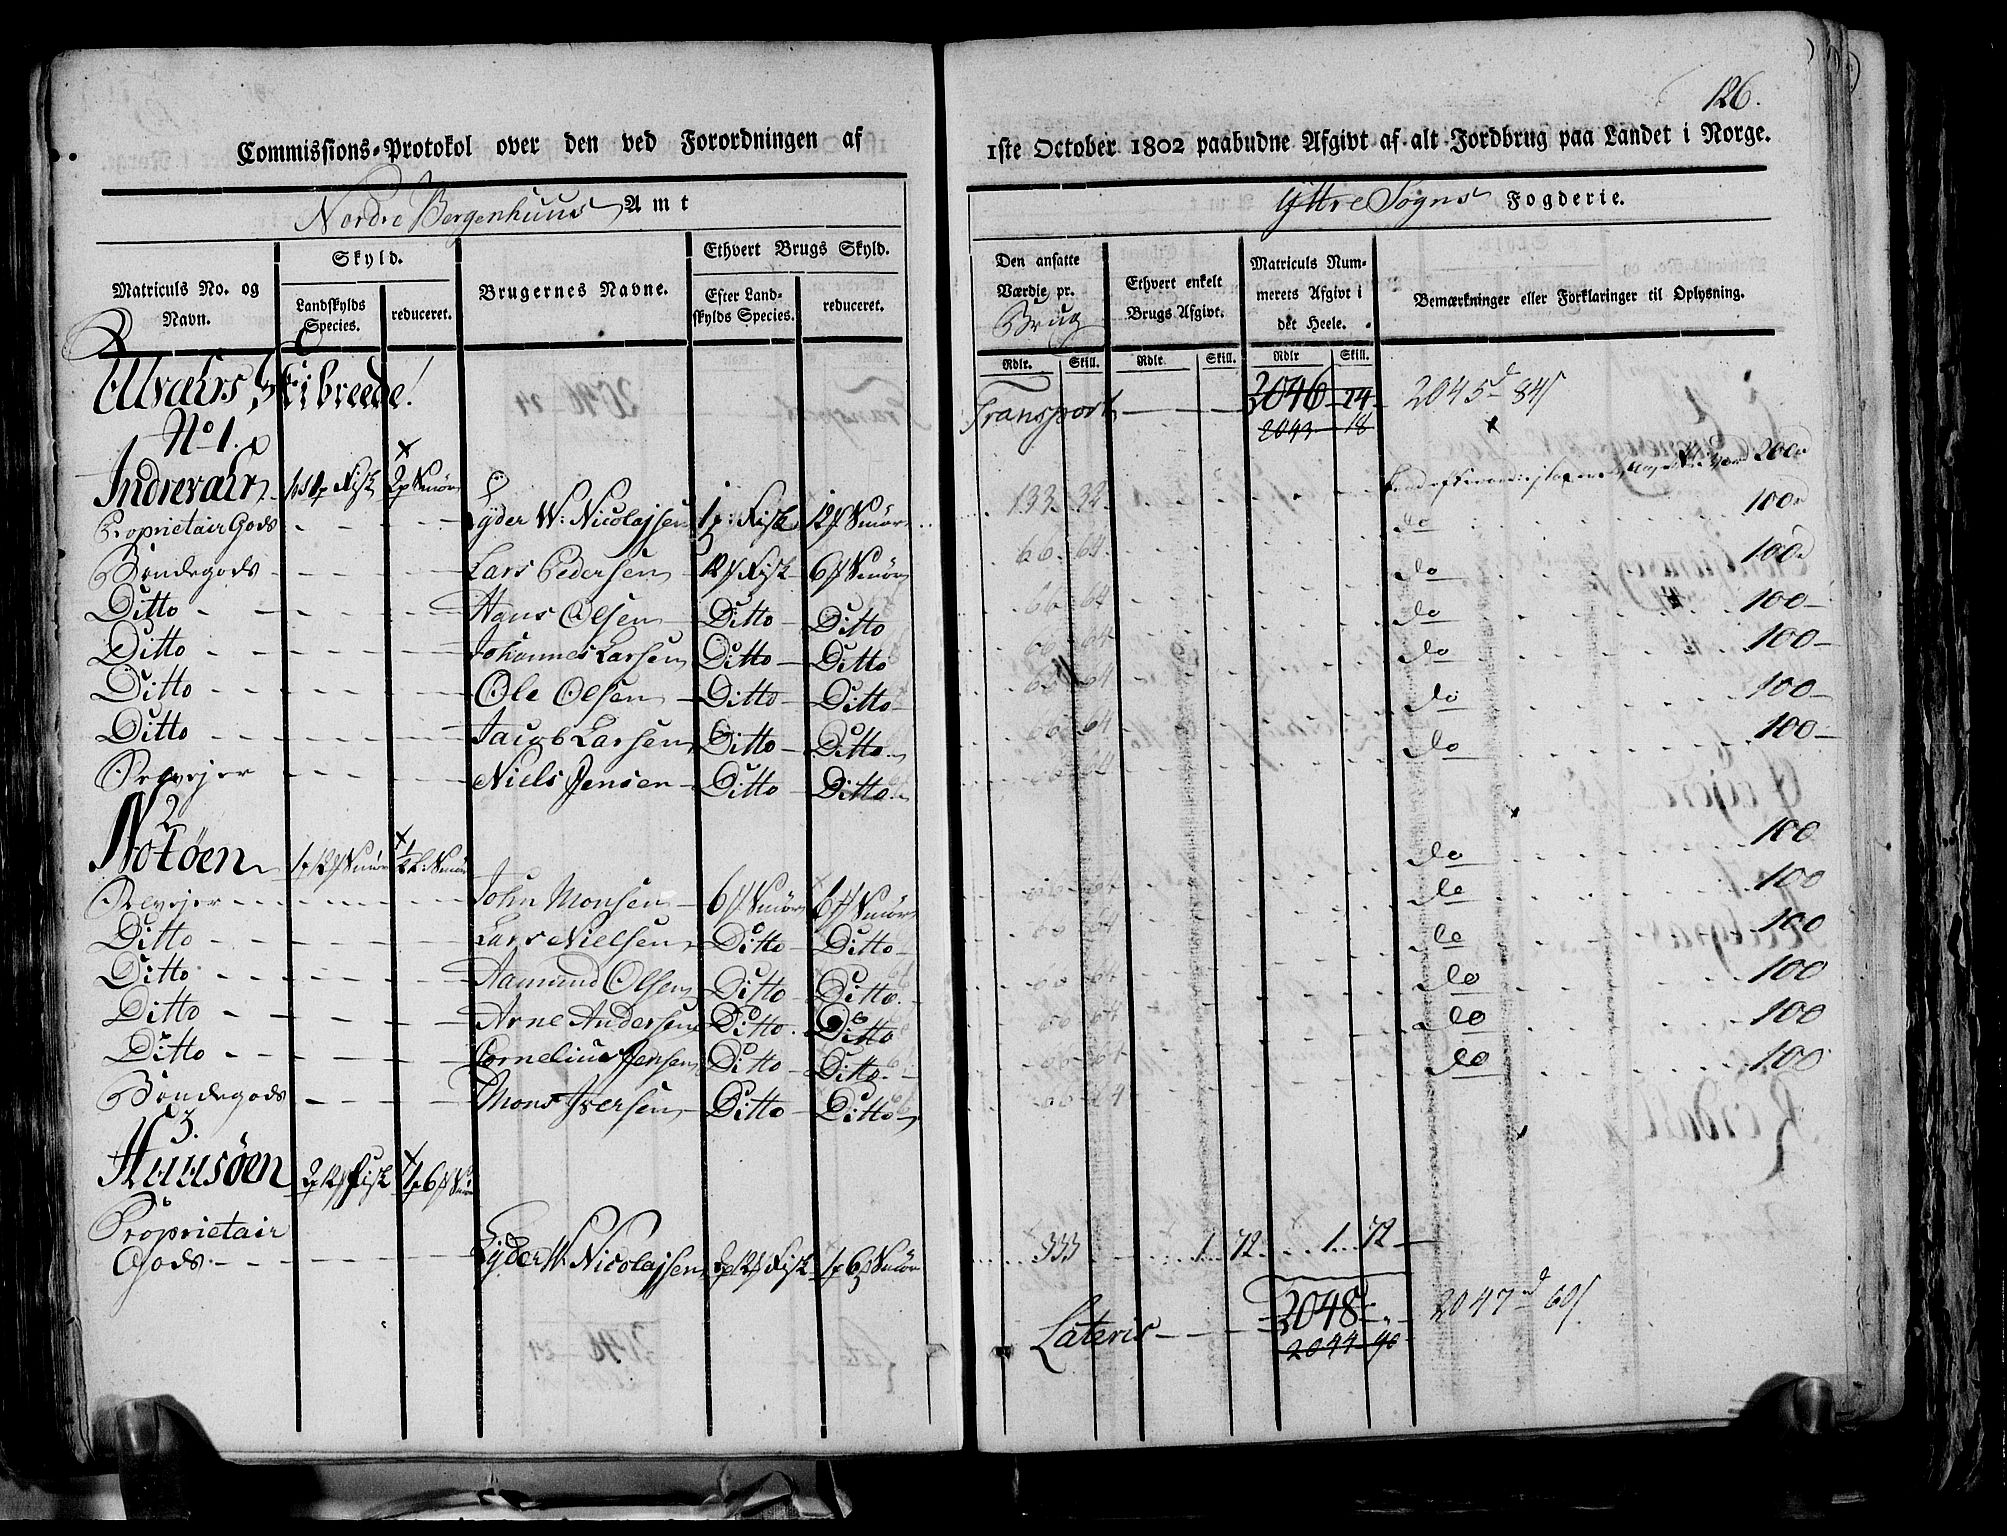 126.
Commissions-Protokol over den ved Forordningen af
1ste October 1802 paabudne Afgivt af alt Jordbrug paa Landet i Norge.
Nordre Bergenhuus Amt
Yttre Sogns Fogderie.
Matriculs No. og Navn.
Skyld.
Landskylds Species.
reduceret.
Brugernes Navne.
Ethvert Brugs Skyld.
Efter Landskylds Species.
reduceret.
Den ansatte Værdie pr. Brug
Ethvert enkelt Brugs Afgivt.
Matriculs Nummerets Afgivt i det Heele.
Bemærkninger eller Forklaringer til Oplysning.
Rdlr. Skill. Rdlr. Skill. Rdlr Skill.
Utvaers Skibreede!
Transport 2046 24 2045 84
2043 18
No 1.
Indrevaer Fisk 2 Smör 200
Proprietair Gods Lyder W. Nicolajsen 1 Fisk 12 Smör 133 32 do 100
Bondegods Lars Pedersen 12 Fisk 6 Smör 66 64 do 100
Ditto Hans Olsen Ditto Ditto 66 64 do 100
Ditto Johannes Larsen Ditto Ditto 66 64 do 100
Ditto Ole Olsen Ditto Ditto 66 64 do 100
Ditto Jacob Larsen Ditto Ditto 66 64 do 100
Selvejer Niels Jensen Ditto Ditto 66 64
2
Notøen 1 12 Smör 1/2 Smör do 100
Selvejer John Monsen 6 Smör 6 Smör 66 64 do 100
Ditto Lars Nielsen Ditto Ditto 66 64 do 100
Ditto Aamund Olsen Ditto Ditto 66 64 do 100
Ditto Arne Andersen Ditto Ditto 66 64 do 100
Ditto Cornelius Jensen Ditto Ditto 66 64 do 100
Bondegods Mons Iversen Ditto Ditto 66 64
3.
Huusøen 2 12 Fisk 1 6 Smör
Proprietair
Gods Lyder W. Nicolajsen 2 12 Fisk 1 6 Smör 333 1 72 1 72
Lateris 2048 2047 60
2044 90